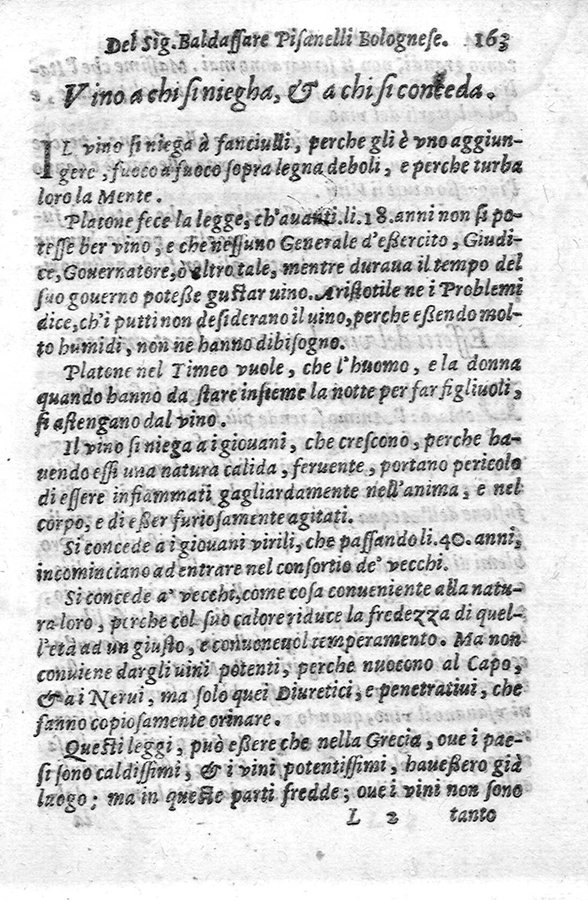 Del Sig. Baldassare Pisanelli Bolognese. 163
Vino a chi si niegha, & a chi si conceda.
IL vino si niega à fanciulli, perche gli è vno aggiun-
gere, fuoco a fuoco sopra legna deboli, e perche turba
loro la Mente.
Platone fece la legge, ch'auanti li. 18. anni non si po-
tesse ber vino, e che nessuno Generale d'eßercito, Giudi-
ce, Gouernatore, ò altro tale, mentre duraua il tempo del
suo gouerno poteße gustar uino. Aristotile ne i Problemi
dice, ch'i putti non desiderano il uino, perche eßendo mol-
to humidi, non ne hanno dibisogno.
Platone nel Timeo vuole, che l'huomo, e la donna
quando hanno da stare insieme la notte per far figliuoli,
si astengano dal vino.
Il vino si niega a i giouani, che crescono, perche ha-
uendo essi una natura calida, feruente, portano pericolo
di essere infiammati gagliardamente nell'anima, e nel
corpo, e di eßer furiosamente agitati.
Si concede a i giouani virili, che passando li. 40. anni,
incominciano ad entrare nel consortio de' vecchi.
Si concede a' vecchi, come cosa conueniente alla natu-
ra loro, perche col suo calore riduce la fredezza di quel-
l'età ad un giusto, e conueneuol temperamento. Ma non
conuiene dargli uini potenti, perche nuocono al Capo,
& a i Nerui, ma solo quei Diuretici, e penetratiui, che
fanno copiosamente orinare.
Questi leggi, può eßere che nella Grecia, oue i pae-
si sono caldissimi, & i vini potentissimi, haueßero già
luogo; ma in queste parti fredde; oue i vini non sono
L 2 tanto